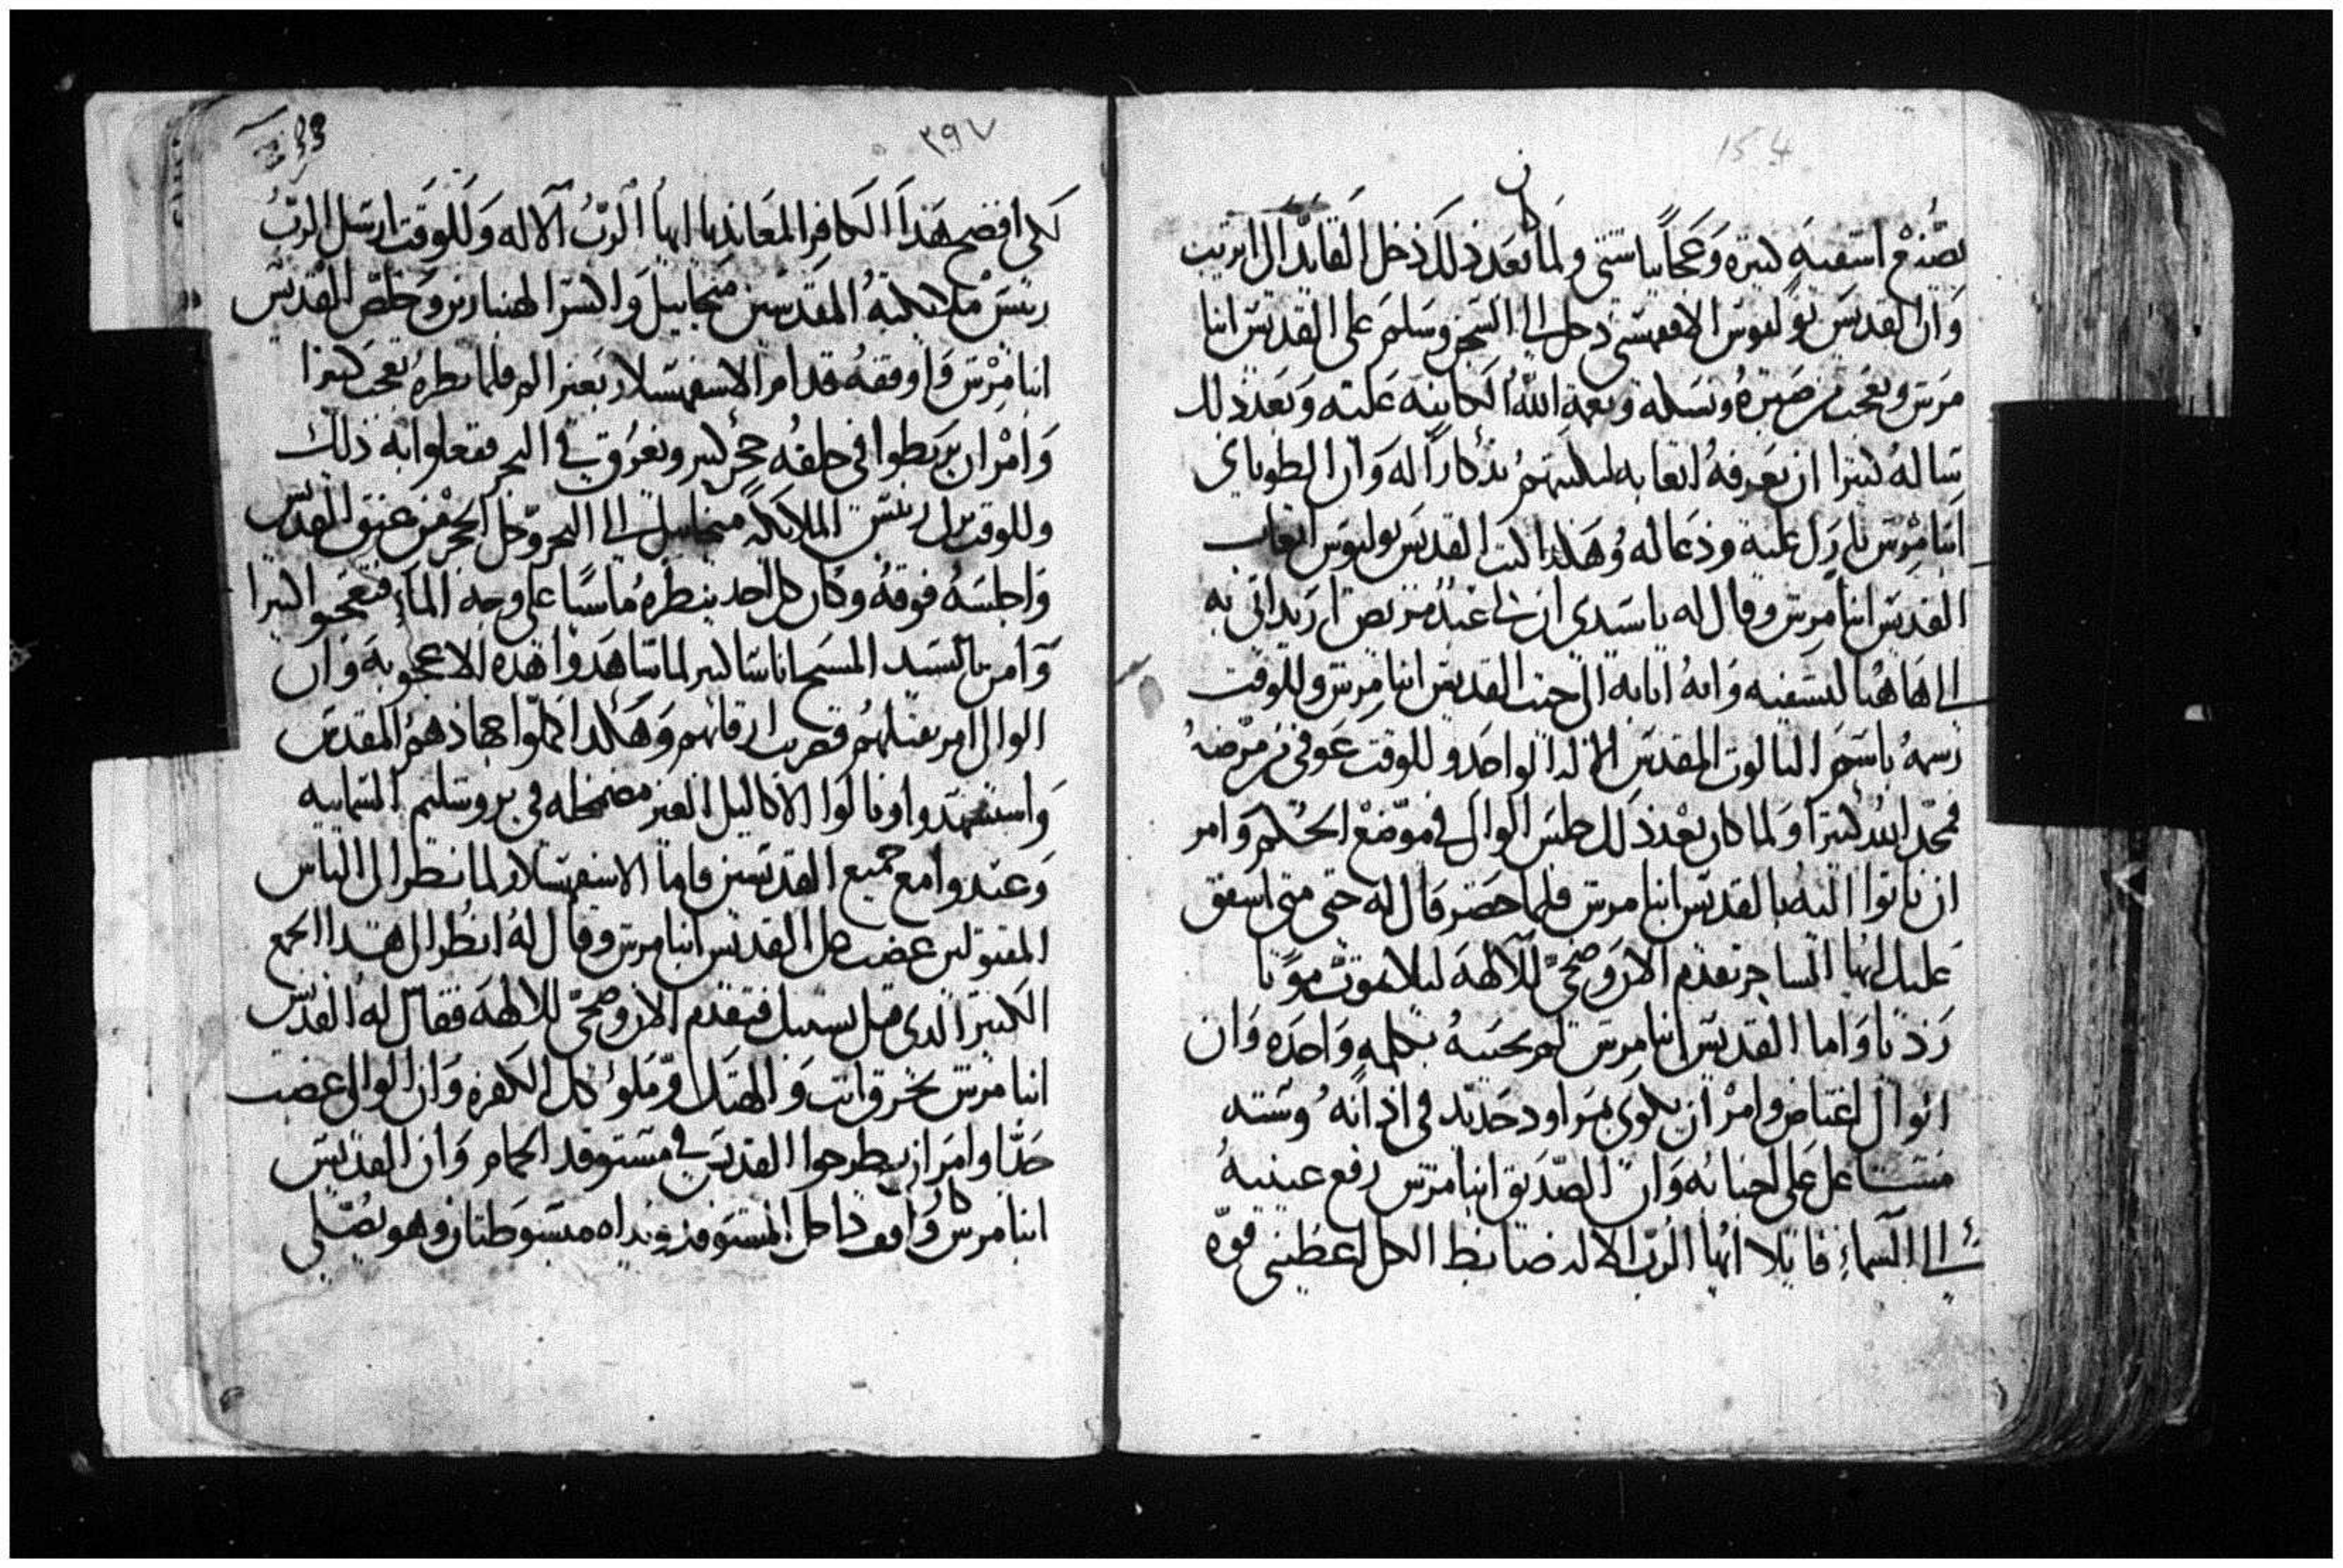 154
يصنع اشفيه كتيره وعجايبا شتي ولما كان بعد ذلك دخل القايد الى ابريب
وان القديس يوليوس الاقفهسي دخل الى السجن وسلم على القديس انبا
مرتس وتعجب من صبره ونسكه ونعمة الله الكاينه عليه وبعد ذلك
ساله كتيرا ان يعرفه اتعابه ليكتبهم تذكارا له وان الطوباي
انبا مرتس بارك عليه ودعا له وهكذا كتب القديس يوليوس اتعاب
القديس انبا مرتس وقال له يا سيدي ان لي عبد مريض اريد اتي به
الى هاهنا لتشفيه وانه اتا به الى حيت القديس انبا مرتس وللوقت
رسمه باسم التالوت المقدس الاله الواحد وللوقت عوفي من مرضه
فمجد الله كتيرا ولما كان بعد ذلك جلس الوالي في موضع الحكم وامر
ان ياتوا اليه بالقديس انبا مرتس فلما حضر قال له حتى متى اشفق
عليك ايها الساحر تقدم الان وضحي للالهة ليلا تموت موتا
رديا واما القديس انبا مرتس لم يجيبه بكلمه واحده وان
الوالي اغتاض وامر ان يكوى بمراود حديد في اذانه وستة
مشاعل على اجنابه وان الصديق انبا مرتس رفع عينيه
الى السماء قايلا ايها الرب الاله ضابط الكل اعطيني قوه
٣٩٧
33
لكي افضح هذا الكافر المعاند يا ايها الرب الاله وللوقت ارسل الرب
ريس ملايكته المقدسين ميخاييل والسر الهنبازين وخلص القديس
انبا مرتس واوقفه قدام الاسفهسلار بغير الم فلما نظره تعجب كتيرا
وامر ان يربطوا في حلقه حجر كبير ويغرق في البحر ففعلوا به ذلك
وللوقت نزل ريس الملايكة ميخاييل الى البحر وحل الحجر من عنق القديس
واجلسه فوقه وكان كل احد ينظره ماشيا على وجه الماء فتعجبوا كتيرا
وامن بالسيد المسيح اناسا كتير لما شاهدوا هذه الاعجوبه وان
الوالي امر بقتلهم فضربت ارقابهم وهكذا كملوا جهادهم المقدس
واستشهدوا ونالوا الاكاليل الغير مضمحله في يروشليم السماييه
وعيدوا مع جميع القديسين فاما الاسفهسلار لما نظر الى الناس
المقتولين غضب على القديس انبا مرتس وقال له انظر الى هذا الجمع
الكتير الذي قتل بسببك فتقدم الان وضحي للالهة فقال له القديس
انبا مرتس تحرق انت والهتك ومملوء كل الكفره وان الوالي غضب
جدا وامر ان يطرحوا القديس في مستوقد الحمام وان القديس
انبا مرتس كان واقف داخل المستوقد ويداه مبسوطتان وهو يصلي